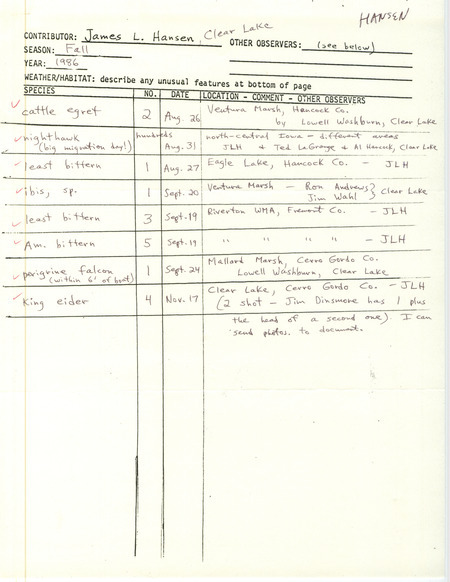 HANSEN
CONTRIBUTOR: James L. Hansen, Clear Lake
OTHER OBSERVERS: (see below)
SEASON: Fall
YEAR: 1986
WEATHER/HABITAT: describe any unusual features at bottom of page
SPECIES NO. DATE LOCATION - COMMENT - OTHER OBSERVERS
cattle egret 2 Aug. 26 Ventura Marsh, Hancock Co.
by Lowell Washburn, Clear Lake
nighthawk hundreds north-central Iowa - different areas
(big migration day!) Aug. 31 JLH & Ted LaGrange & Al Hancock, Clear Lake
least bittern 1 Aug. 27 Eagle Lake, Hancock Co. - JLH
ibis, sp. 1 Sept. 20 Ventura Marsh - Ron Andrews } Clear Lake
Jim Wahl
least bittern 3 Sept. 19 Riverton WMA, Fremont Co. - JLH
Am. bittern 5 Sept. 19 " " " - JLH
perigrine falcon 1 Sept. 24 Mallard Marsh, Cerro Gordo Co.
(within 6' of boat) Lowell Washburn, Clear Lake
King eider 4 Nov. 17 Clear Lake, Cerro Gordo Co. - JLH
(2 shot - Jim Dinsmore has 1 plus
the head of a second one) I can
send photos to document.